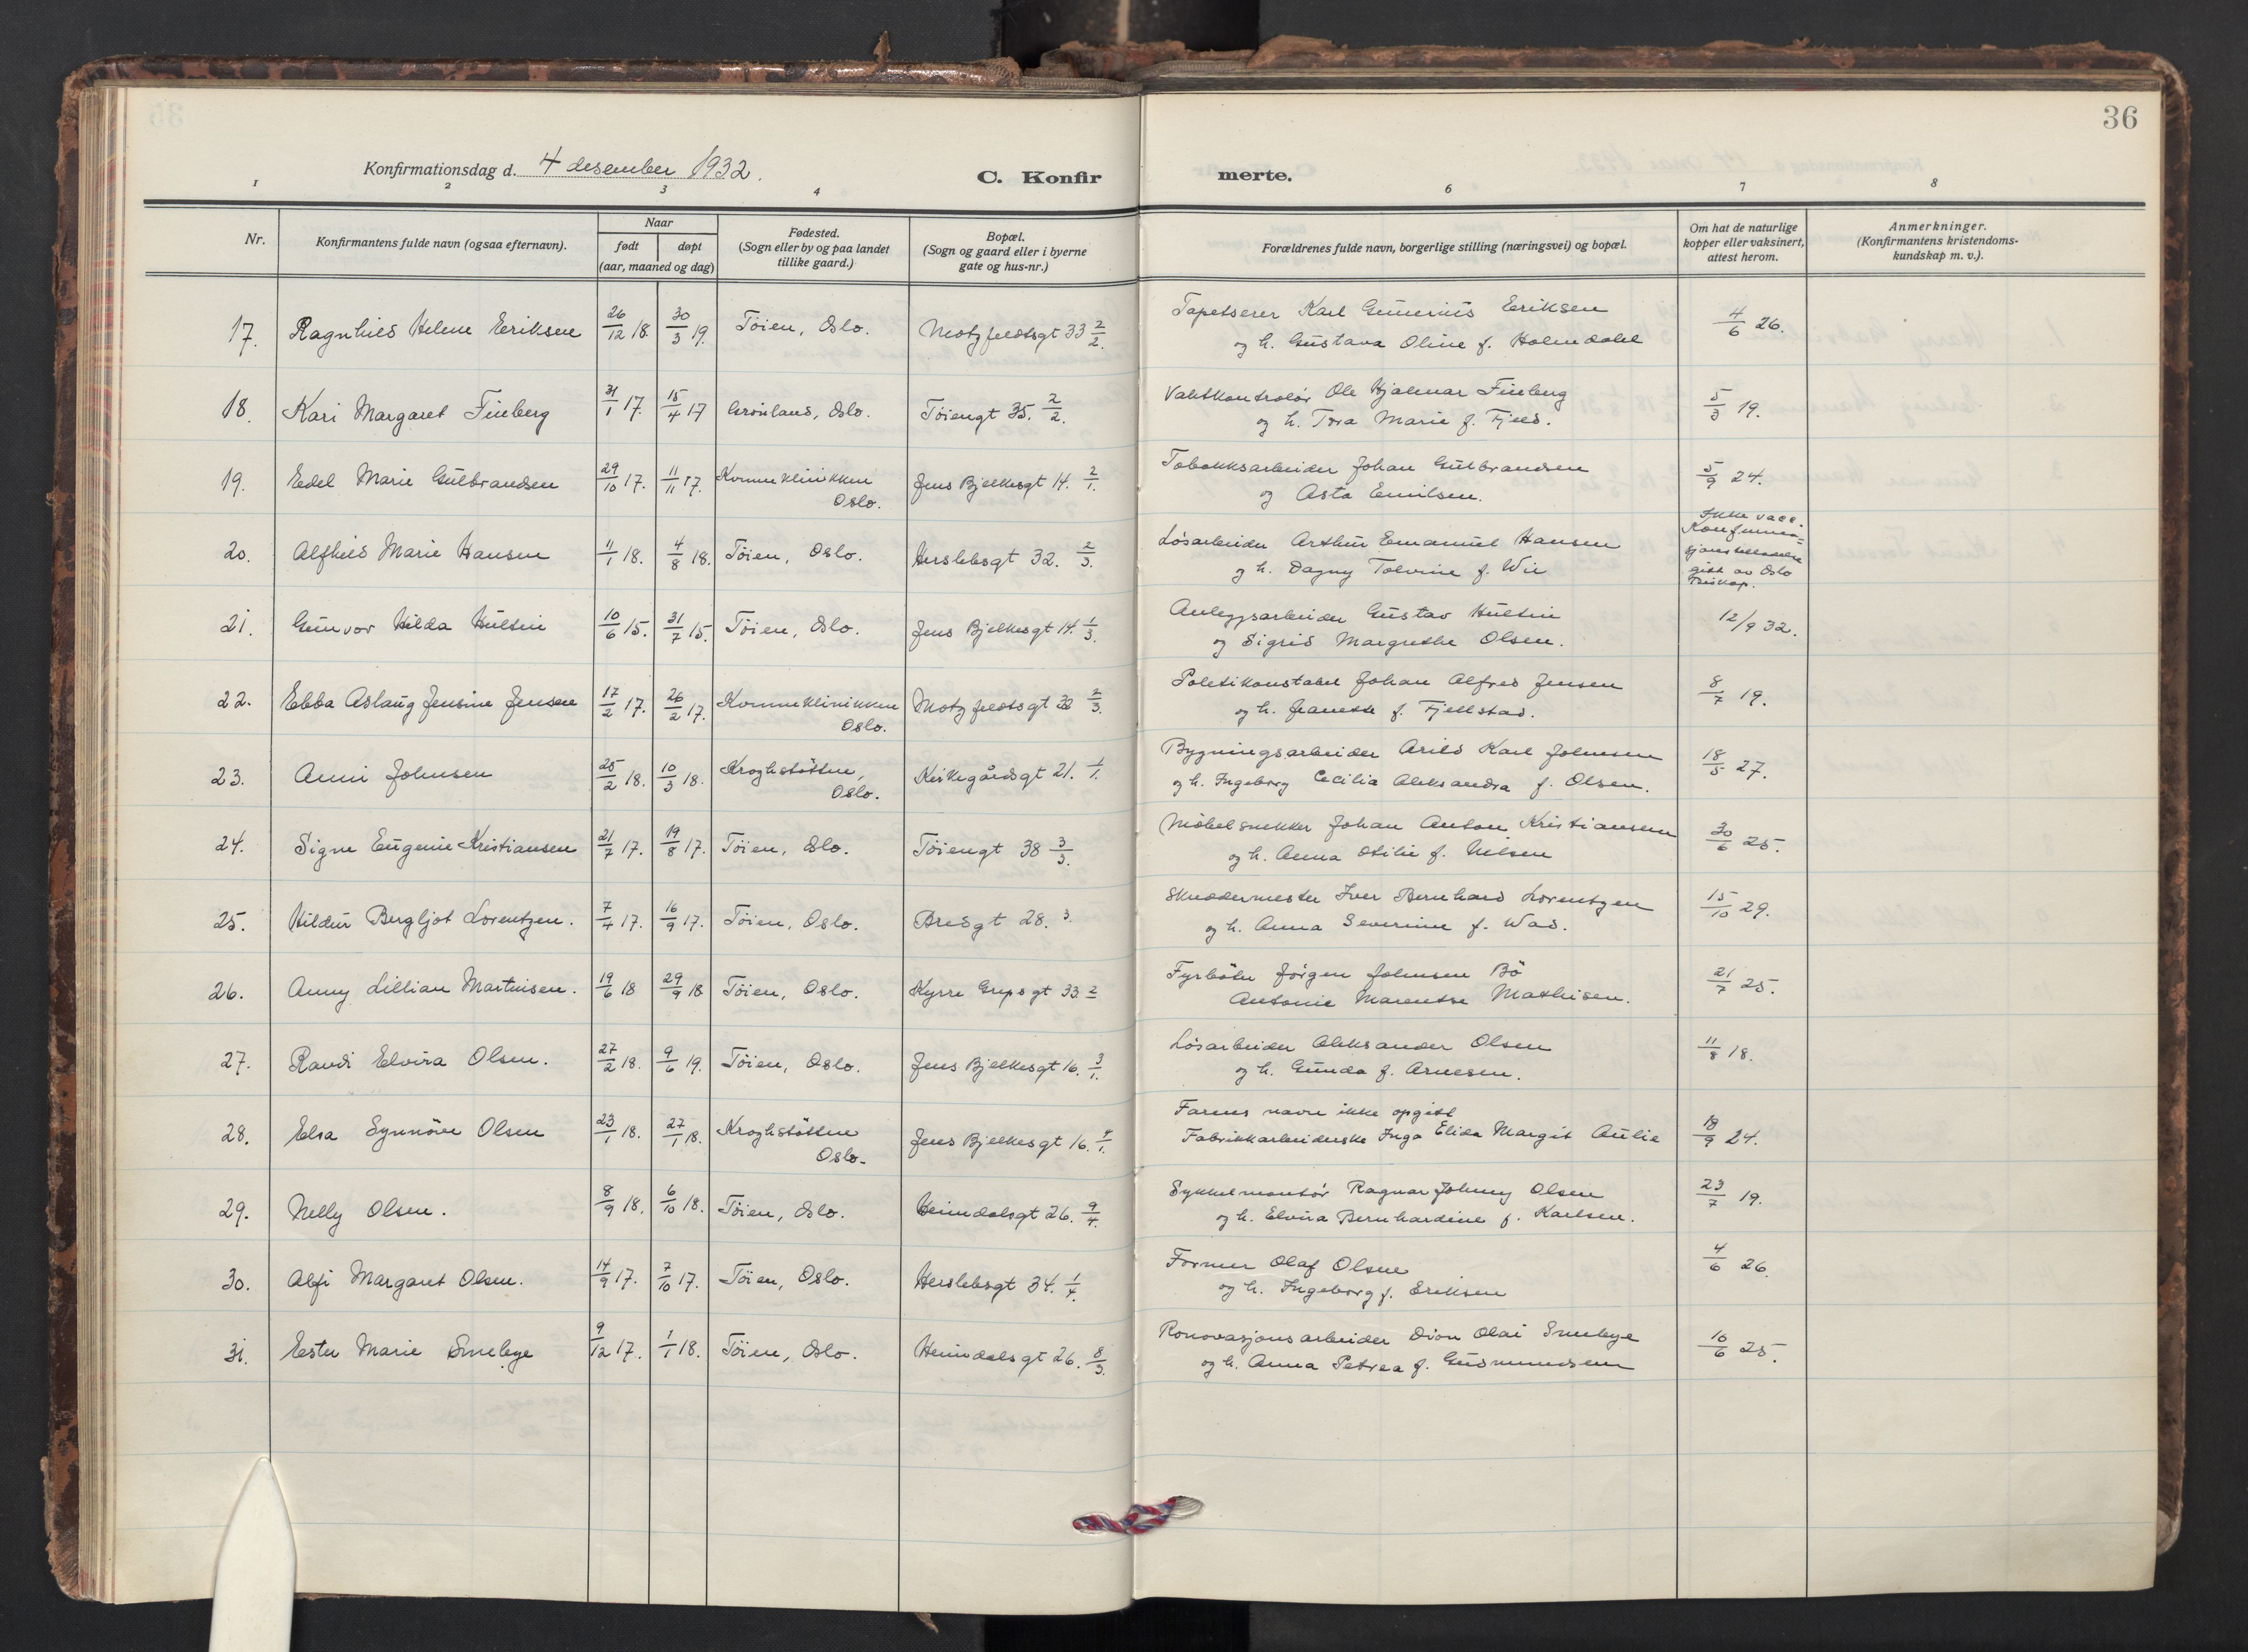 36
Konfirmationsdag d. 4 desember 1932.
C. Konfirmerte.
1 2 3 4 6 7 8
Nr.
Konfirmantens fulde navn (ogsaa efternavn).
Naar
født døpt
(aar, maaned og dag)
Fødested.
(Sogn eller by og paa landet
tillike gaard.)
Bopæl.
(Sogn og gaard eller i byerne
gate og hus-nr.)
Forældrenes fulde navn, borgerlige stilling (næringsvei) og bopæl.
Om hat de naturlige
kopper eller vaksinert,
attest herom.
Anmerkninger.
(Konfirmantens kristendoms-
kundskap m. v.).
17. Ragnhild Helene Eriksen 26/12 18. 30/3 19. Töien, Oslo. Motzfeldtsgt 33 2/2. Tapetserer Karl Gunerius Eriksen 4/6 26.
og h. Gustava Oline f. Holmdahl
18. Kari Margaret Finberg 31/1 17. 15/4 17 Grönland, Oslo. Töiengt 35. 2/2. Vaktkontrolör Ole Hjalmar Finberg 5/3 19.
og h. Tora Marie f. Fjeld.
19. Edel Marie Gulbrandsen 29/10 17. 11/11 17. Kvinneklinikken Jens Bjelkesgt 14. 2/1. Tobakksarbeider Johan Gulbrandsen 5/9 24.
Oslo. og Asta Emilsen.
20. Alfhild Marie Hansen 11/1 18. 4/8 18. Töien, Oslo. Herslebsgt 32. 2/3. Lösarbeider Arthur Emanuel Hansen Ikke vacc.
Konfirma-
sjonstillatelse
gitt av Oslo
Biskop.
og h. Dagny Tolvine f. Wii
21. Gunvor Hilda Hultin 10/6 15. 31/7 15. Töien, Oslo. Jens Bjelkesgt 14. 1/3. Anleggsarbeider Gustav Hultin 12/9 32.
og Sigrid Margrethe Olsen.
22. Ebba Aslaug Jensine Jensen 17/2 17. 26/2 17. Kvinneklinikken Motzfeldtsgt 23 2/3. Politikonstabel Johan Alfred Jensen 8/7 19.
Oslo. og h. Jeanette f. Fjellstad.
23. Anni Johnsen 25/2 18. 10/3 18. Kroghstötten, Kirkegårdsgt 21. 1/1. Bygningsarbeider Arild Karl Johnsen 18/5 27.
Oslo. og h. Ingeborg Cecilia Aleksandra f. Olsen.
24. Signe Eugenie Kristiansen 21/7 17. 19/8 17. Töien, Oslo. Töiengt 38 3/3. Möbelsnekker Johan Anton Kristiansen 30/6 25.
og h. Anna Otilie f. Nilsen
25. Hildur Bergljot Lorentzen. 7/4 17. 16/9 17. Töien, Oslo. Bredgt 28. 3. Skreddermester Iver Bernhard Lorentzen 15/10 29.
og h. Anna Severine f. Wad.
26. Anny Lillian Martinsen. 19/6 18 29/9 18 Töien, Oslo. Kyrre Grepsgt 33. 2 Fyrböter Jörgen Johnsen Bö 21/7 25.
Antonie Marentse Mathisen.
27. Randi Elvira Olsen. 27/2 18. 9/6 19. Töien, Oslo. Jens Bjelkesgt 16. 3/1. Lösarbeider Aleksander Olsen 11/8 18.
og h. Gunda f. Arnesen.
28. Elsa Synnöve Olsen 23/1 18. 27/1 18. Kroghstötten Jens Bjelkesgt 16. 4/1. Farens navn ikke opgitt 18/9 24.
Oslo. Fabrikkarbeiderske Inga Elida Margit Aulie
29. Nelly Olsen. 8/9 18. 6/10 18. Töien, Oslo. Heimdalsgt 26. 9/4. Sykkelmontör Ragnar Johnny Olsen 23/7 19.
og h. Elvira Bernhardine f. Karlsen.
30. Alfi Margaret Olsen. 14/9 17. 7/10 17. Töien, Oslo. Herslebsgt 34. 1/4. Former Olaf Olsen 4/6 26.
og h. Ingeborg f. Eriksen
31. Ester Marie Smebye 9/12 17. 1/1 18. Töien, Oslo. Heimdalsgt 26. 8/3. Renovasjonsarbeider Dion Olai Smebye 10/6 25.
og h. Anna Petrea f. Gudmundsen